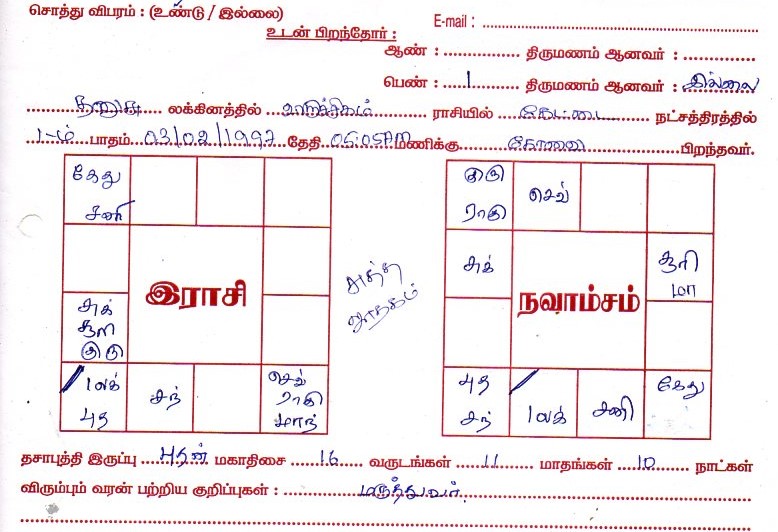 சொத்து விபரம் : (உண்டு / இல்லை)
E-mail : ....................
உடன் பிறந்தோர் :
ஆண் : .................. திருமணம் ஆனவர் : ..............
பெண் : ....1.... திருமணம் ஆனவர் : இல்லை
தனுசு லக்கினத்தில் விருச்சிகம் ராசியில் கேட்டை நட்சத்திரத்தில்
1-ம் பாதம் 03/02/1997 தேதி 05:05AM மணிக்கு கோவை பிறந்தவர்.
கேது
சனி
சுக்
சூரி
குரு
இராசி
லக்
புத
சந்
செவ்
ராகு
மாந்
சுத்த
ஜாதகம்
குரு
ராகு
செவ்
சுக்
சூரி
மா
நவாம்சம்
புத
சந்
லக்
சனி
கேது
தசாபுத்தி இருப்பு புதன் மகாதிசை 16 வருடங்கள் 11 மாதங்கள் 10 நாட்கள்
விரும்பும் வரன் பற்றிய குறிப்புகள் : மருத்துவர்.